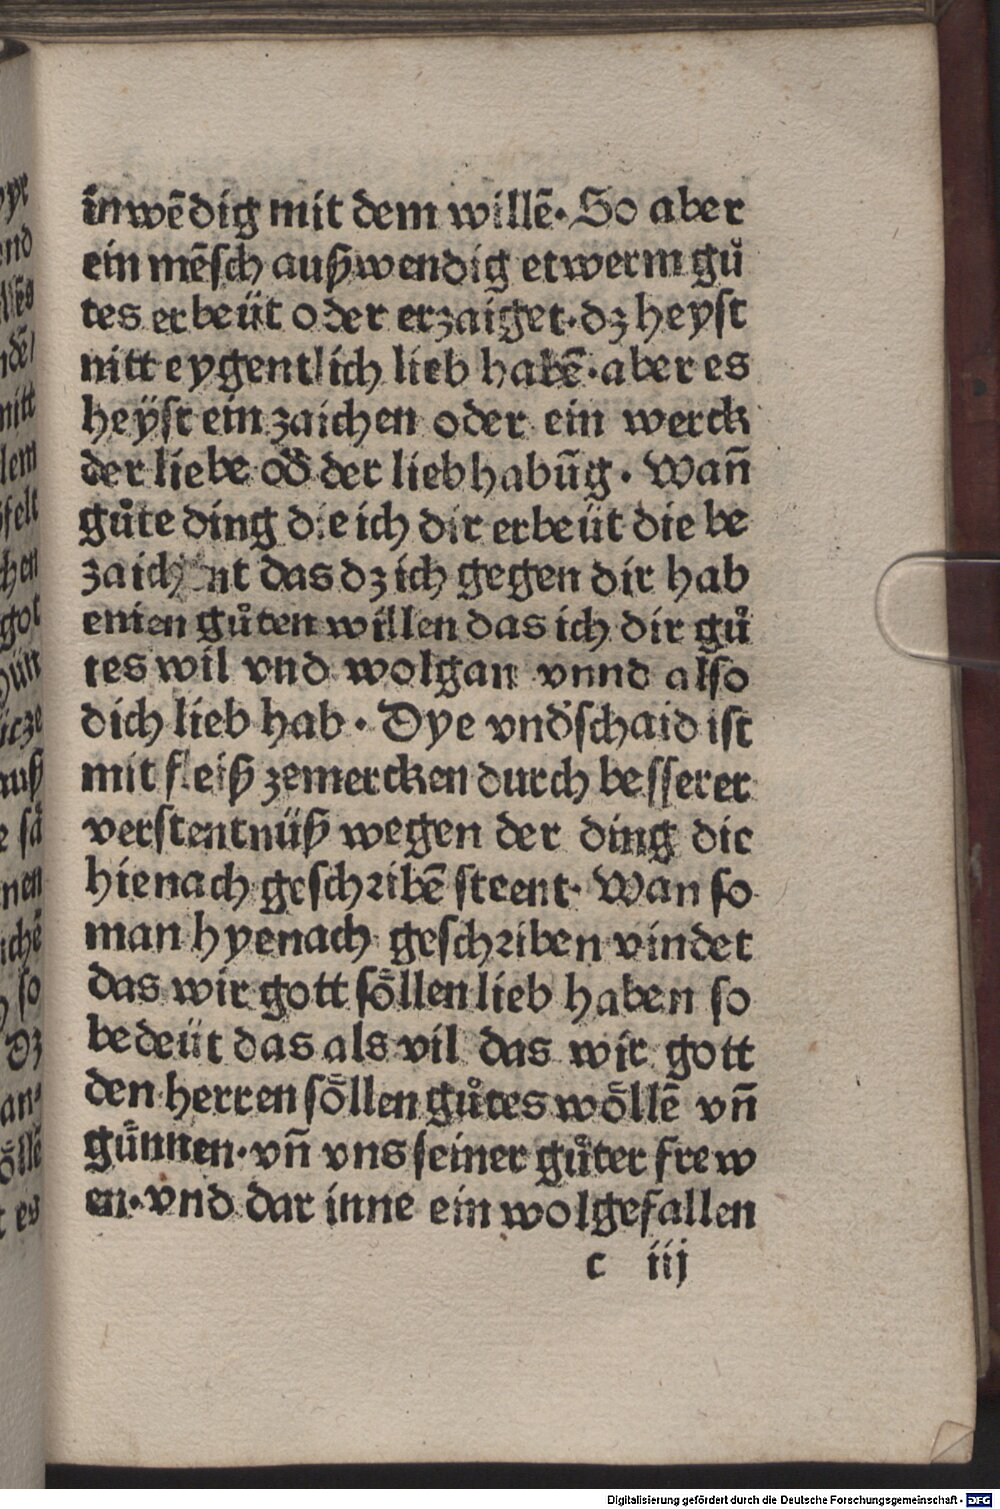 inwēdig mit dem willē. So aber
ein mēsch außwendig etwerm gů
tes erbeüt oder erzaiget. dz heyst
nitt eygentlich lieb habē. aber es
heÿst ein zaichen oder ein werck
der liebe oď der liebhabūg. Wañ
gůte ding die ich dir erbeüt die be
zaichent das dz ich gegen dir hab
enien gůten willen das ich dir gů
tes wil vnd wolgan vnnd also
dich lieb hab. Dye vnďschaid ist
mit fleiß zemercken durch besserer
verstentnüß wegen der ding die
hienach geschribē steent. Wan so
man hyenach geschriben vindet
das wir gott söllen lieb haben so
bedeüt das als vil das wir gott
den herren söllen gůtes wöllē vñ
günnen. vñ vns seiner gůter frew
en. vnd dar inne ein wolgefallen
c iij
Digitalisierung gefördert durch die Deutsche Forschungsgemeinschaft - DFG